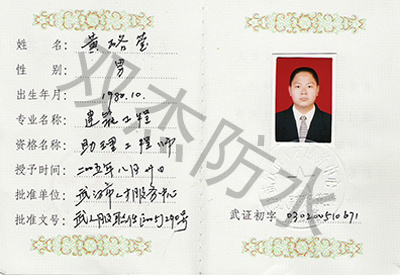 姓 名: 黄珞莹
性 别: 男
出生年月: 1980.10.
专业名称: 建筑工程
资格名称: 助理工程师
授予时间: 二〇〇五年八月十日
批准单位: 武汉市人才服务中心
批准文号: 武人服职[2005]290号
武证初字 030200510671
双杰防水